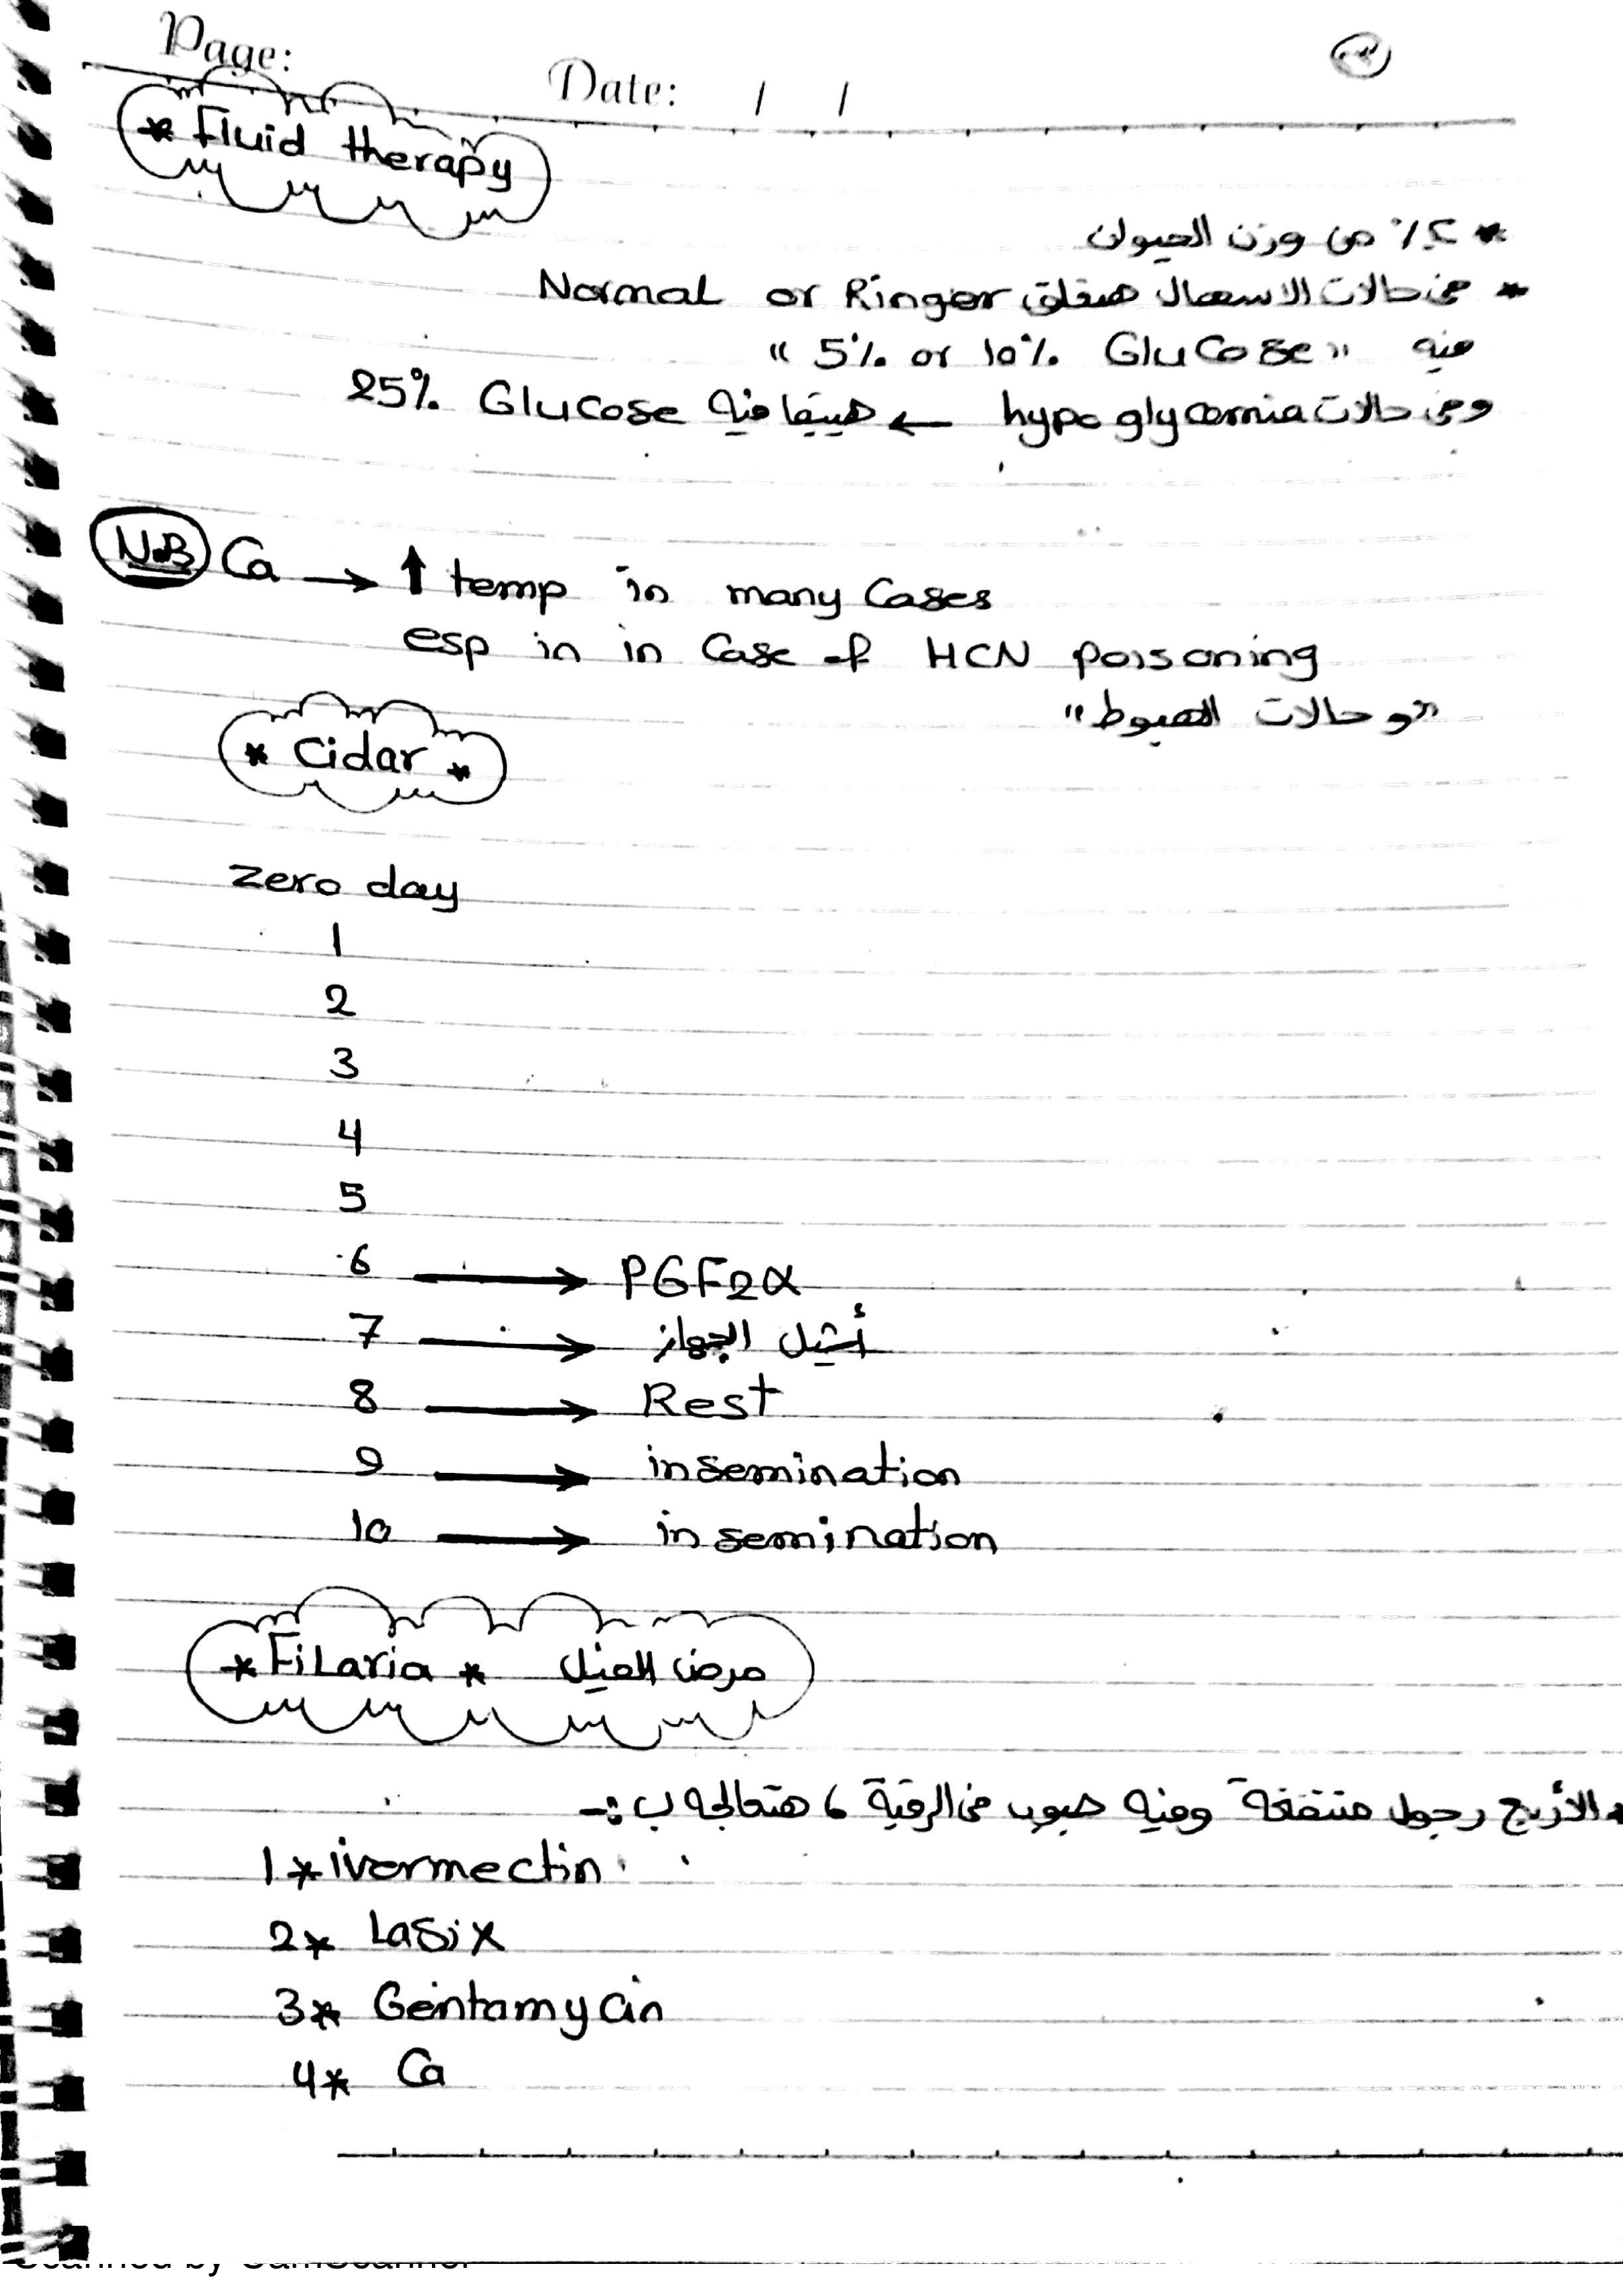 Page:
Date: / /
* Fluid therapy
* ٢٪ من وزن الحيوان
* في حالات الاسهال هنعلق Normal or Ringer
فيه "5% or 10% Glucose"
وفي حالات hypoglycemia ← هيبقا فيه 25% Glucose
N.B Ca → ↑ temp in many Cases
esp in in Case of HCN poisoning
"و حالات الهبوط"
* Cidar *
Zero day
1
2
3
4
5
6 → PGF2α
7 → أشيل الجهاز
8 → Rest
9 → insemination
10 → insemination
* Filaria * مرض الفيل
* الأربع رجول منتفخة وفيه حبوب في الرقبة ، هتعالجه ب :-
1* ivermectin
2* Lasix
3* Gentamycin
4* Ca
Scanned by CamScanner